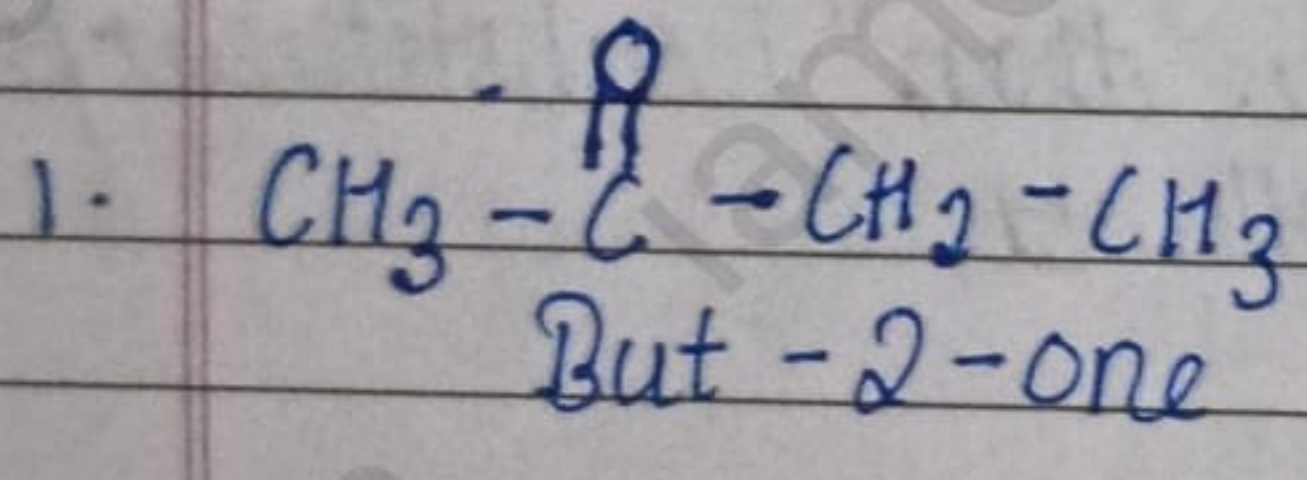 O
1. CH3 - C - CH2 - CH3
But - 2 - one